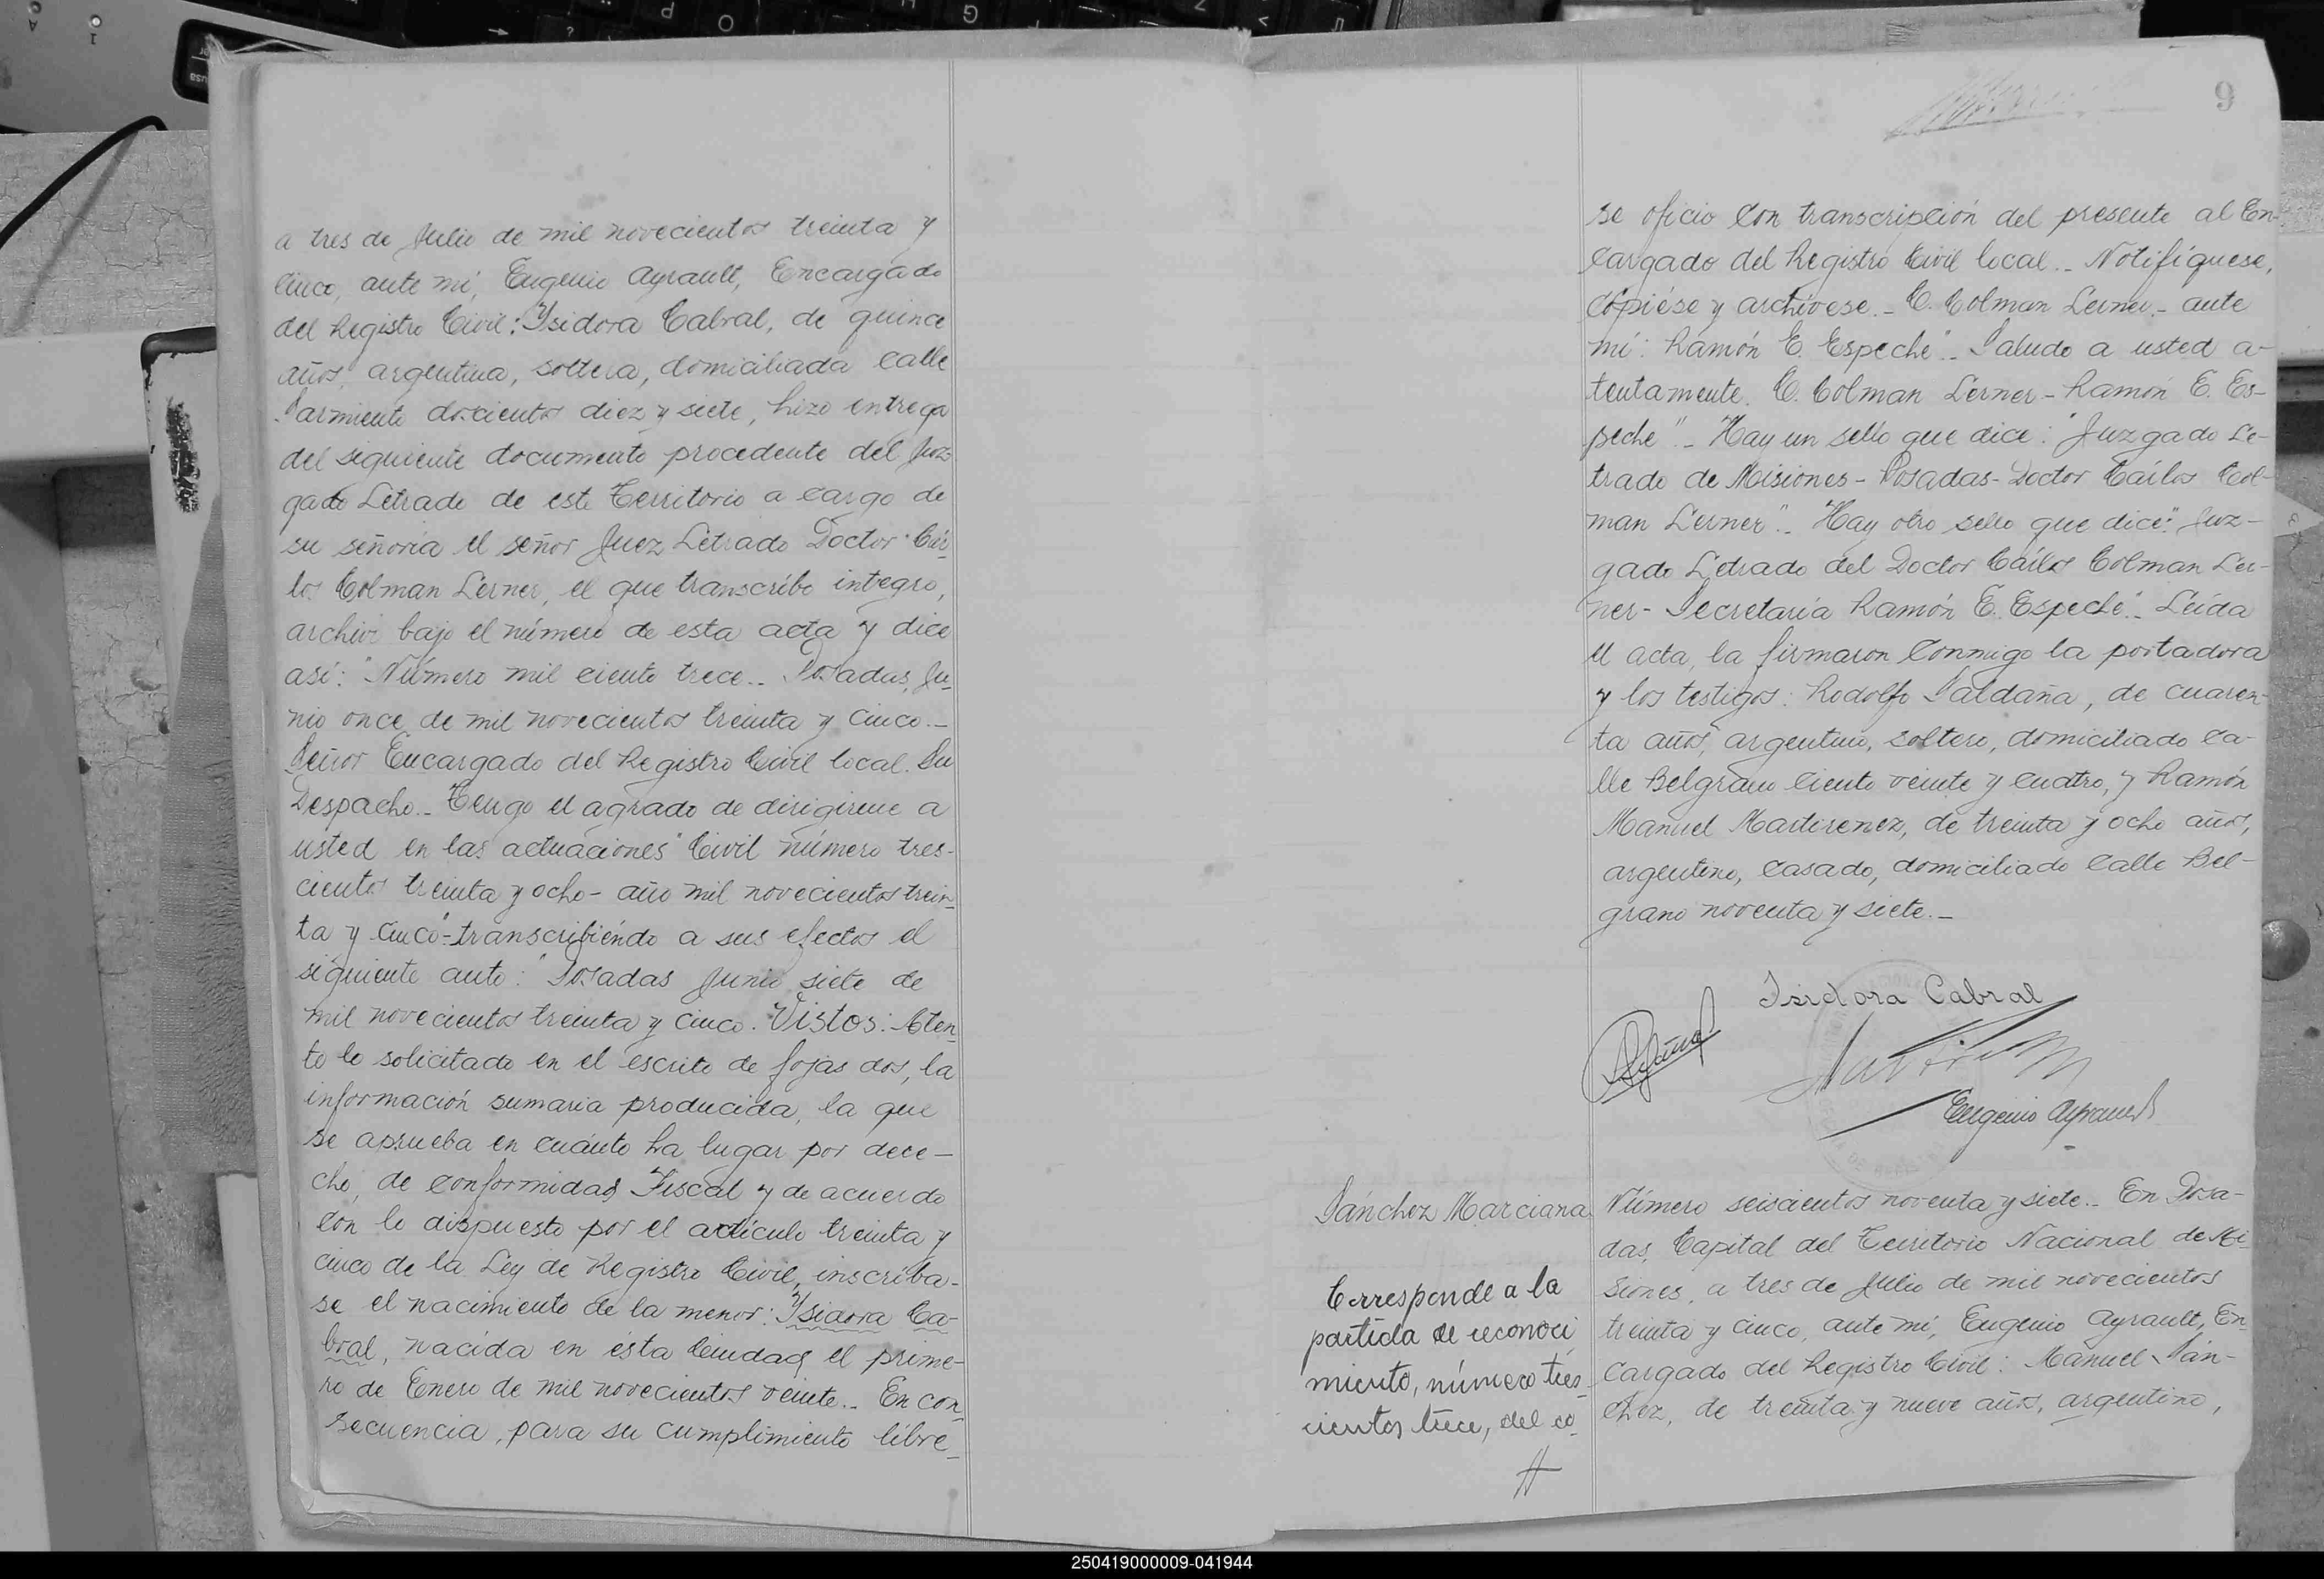 a tres de Julio de mil novecientos treinta y
cinco, ante mí, Eugenio Ayrault, Encargado
del Registro Civil: Ysidora Cabral, de quince
años, argentina, soltera, domiciliada calle
Sarmiento doscientos diez y siete, hizo entrega
del siguiente documento procedente del Juz-
gado Letrado de este Territorio a cargo de
su señoría el señor Juez Letrado Doctor Cár-
los Colman Lerner, el que transcribo integro,
archivo bajo el número de esta acta y dice
así: "Número mil ciento trece.- Posadas, Ju-
nio once de mil novecientos treinta y cinco.-
Señor Encargado del Registro Civil local. Su
Despacho.- Tengo el agrado de dirigirme a
usted en las actuaciones "Civil número tres-
cientos treinta y ocho - año mil novecientos trein-
ta y cinco"- transcribiéndo a sus efectos el
siguiente auto: "Posadas Junio siete de
mil novecientos treinta y cinco. Vistos: Aten-
to lo solicitado en el escrito de fojas dos, la
información sumaria producida, la que
se aprueba en cuánto ha lugar por dere-
cho, de conformidad Fiscal y de acuerdo
con lo dispuesto por el artículo treinta y
cinco de la Ley de Registro Civil, inscríba-
se el nacimiento de la menor: Ysidora Ca-
bral, nacida en ésta Ciudad, el prime-
ro de Enero de mil novecientos veinte.- En con-
secuencia, para su cumplimiento líbre-
9
se oficio con transcripción del presente al En-
cargado del Registro Civil local.- Notifíquese,
cópiése y archívese.- C. Colman Lerner.- ante
mí: Ramón E. Espeche".- Saludo a usted a-
tentamente. C. Colman Lerner - Ramón E. Es-
peche".- Hay un sello que dice: "Juzgado Le-
trado de Misiones - Posadas - Doctor Cárlos Col-
man Lerner".- Hay otro sello que dice: "Juz-
gado Letrado del Doctor Cárlos Colman Ler-
ner - Secretaría Ramón E. Espeche".- Leída
el acta, la firmaron conmigo la portadora
y los testigos: Rodolfo Saldaña, de cuaren-
ta años, argentino, soltero, domiciliado ca-
lle Belgrano ciento veinte y cuatro, y Ramón
Manuel Martirenez, de treinta y ocho años,
argentino, casado, domiciliado calle Bel-
grano noventa y siete.-
Isidora Cabral
Eugenio Ayrault
Sánchez Marciana
Corresponde a la
partida de reconoci
miento, número tres-
cientos trece, del co-
Número seiscientos noventa y siete.- En Posa-
das, Capital del Territorio Nacional de Mi-
siones, a tres de Julio de mil novecientos
treinta y cinco, ante mí, Eugenio Ayrault, En-
cargado del Registro Civil: Manuel Sán-
chez, de treinta y nueve años, argentino,
250419000009-041944